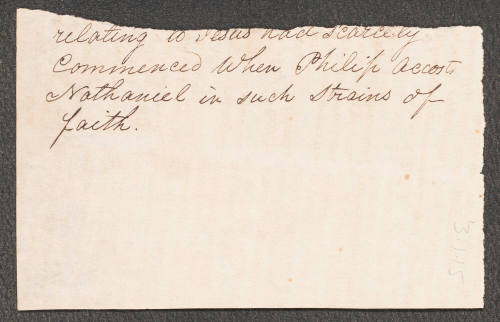 relating to Jesus had scarcely
Commenced When Philip accosts
Nathaniel in such Strains of
faith.
3,115